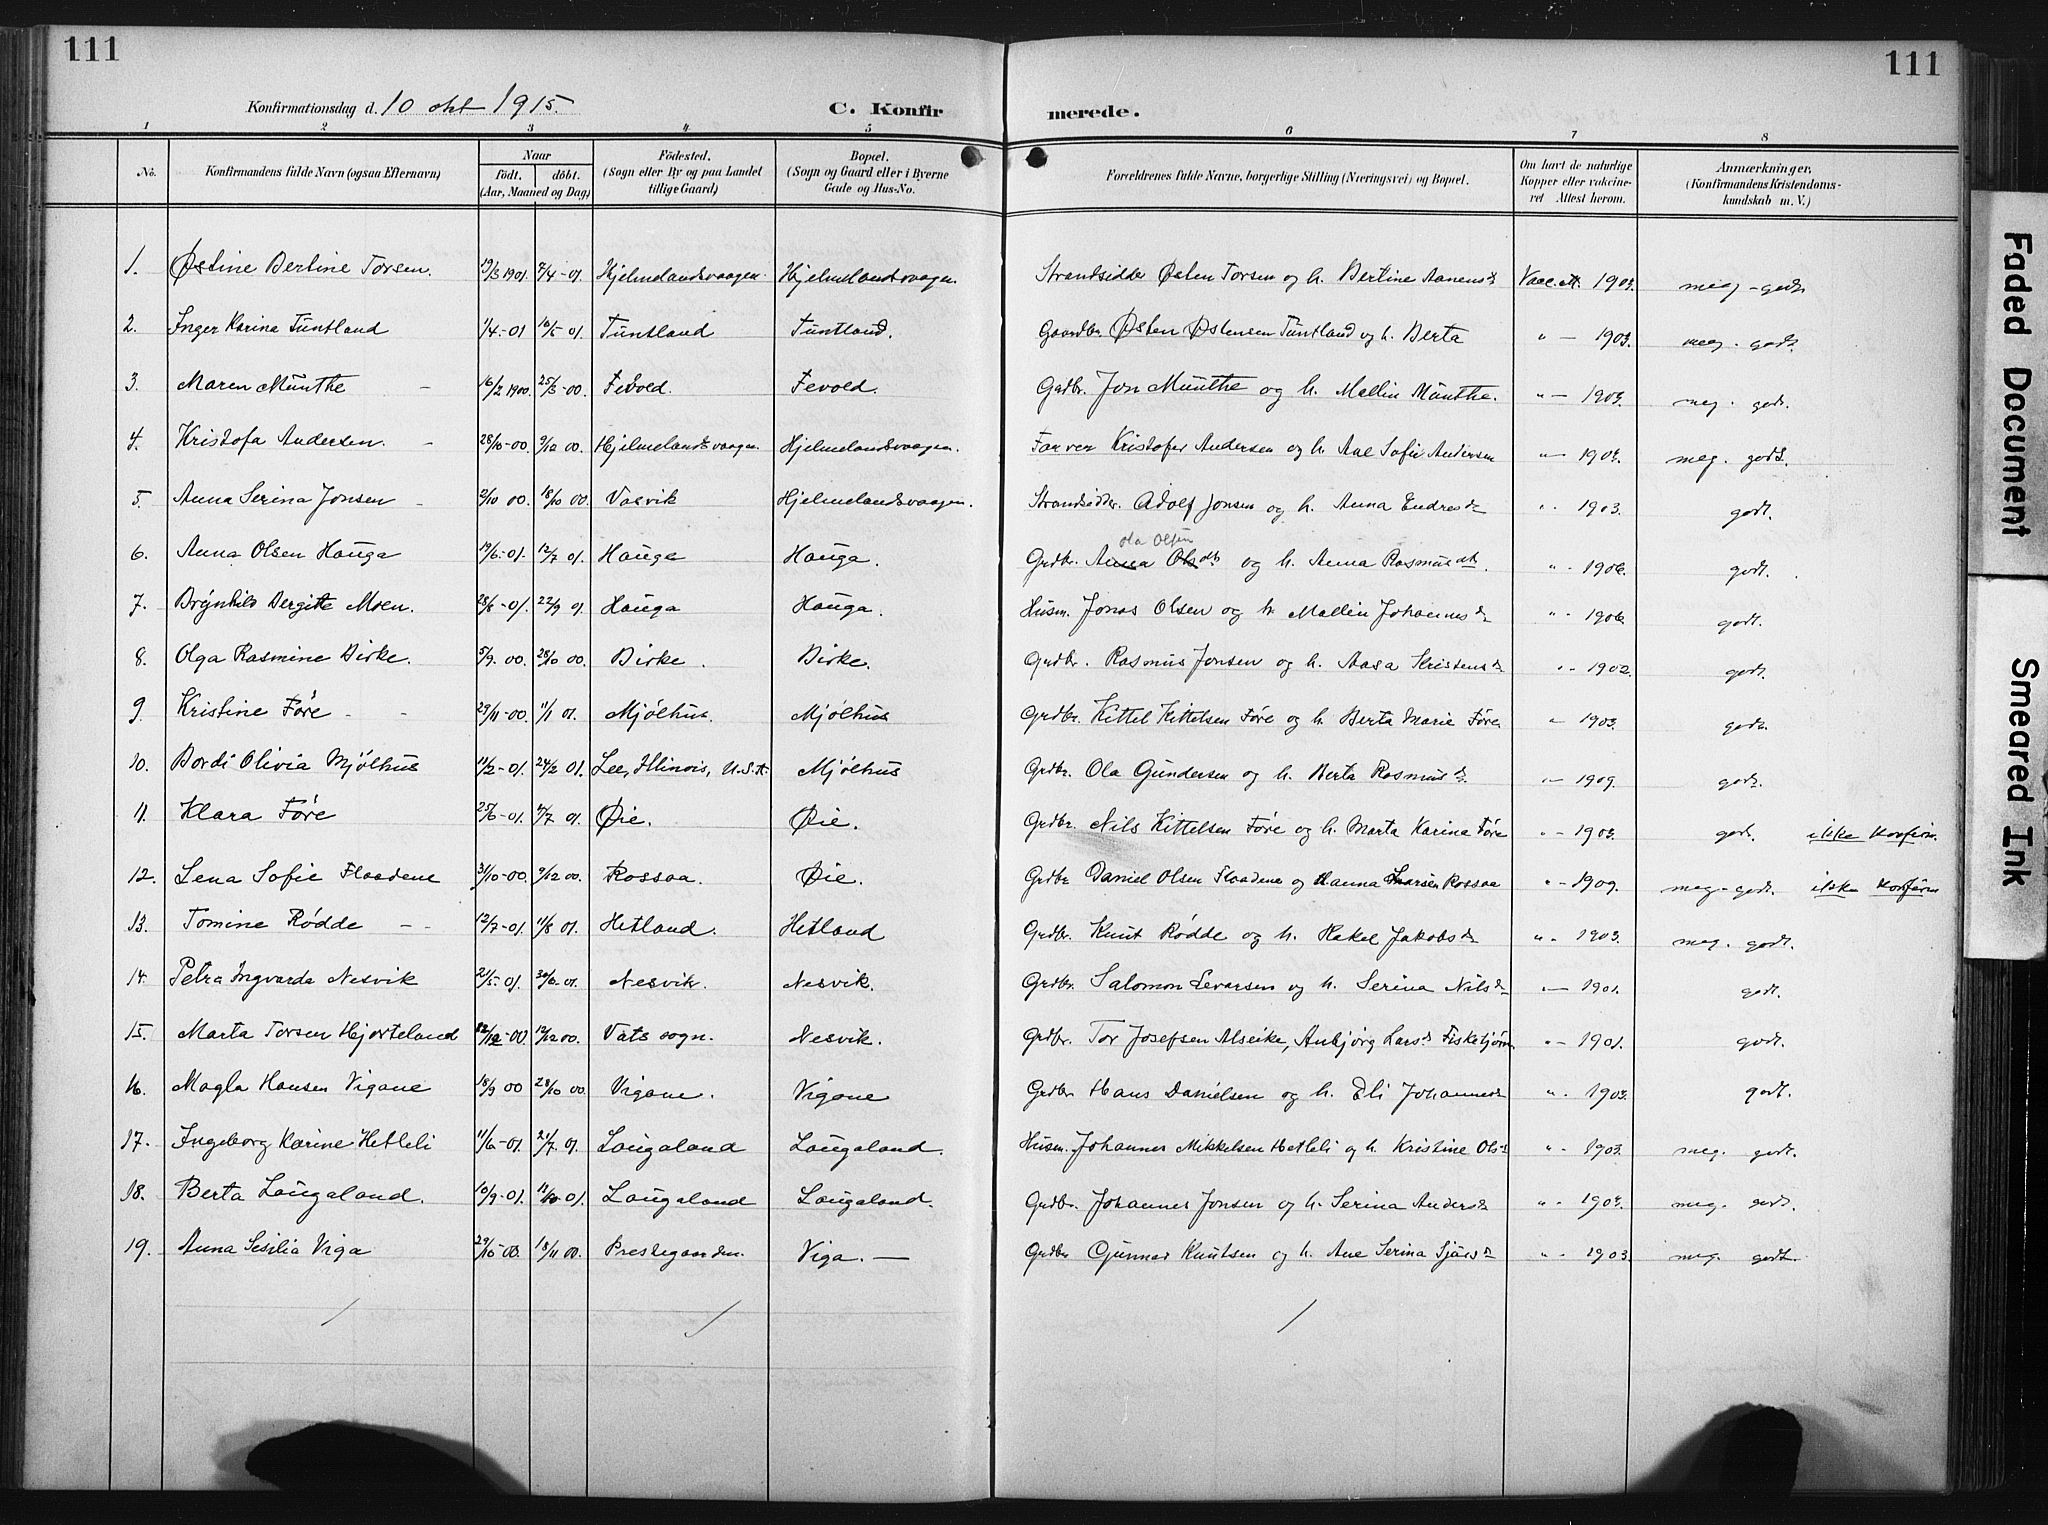 111
111
Konfirmationsdag d. 10 okt 1915.
C. Konfir
merede.
1 2 3 4 5 6 7 8
No.
Konfirmandens fulde Navn (ogsaa Efternavn)
Naar
født. döbt.
(Aar, Maaned og Dag)
Födested.
(Sogn eller By og paa Landet tillige Gaard)
Bopæl.
(Sogn og Gaard eller i Byerne Gade og Hus-No.
Forældrenes fulde Navne, borgerlige Stilling (Næringsvei) og Bopæl.
Om havt de naturlige Kopper eller vakcineret Attest herom.
Anmærkninger,
(Konfirmandens Kristendomskundskab m. V.)
1. Østine Bertine Torsen. 19/3 1901 7/4-01. Hjelmelandsvaagen. Hjelmelandsvaagen. Strandsidder Østen Torsen og h. Bertine Aanensd. Vacc. att. 1903. meg - godt
2. Inger Karina Tuntland 1/4-01 16/5 01. Tuntland Tuntland. Gaardbr. Østen Østensen Tuntland og h. Berta " - 1903. meg. godt.
3. Maren Munthe - 16/2 1900. 25/3-00. Fevold. Fevold. Grdbr. Jon Munthe og h. Mallin Munthe. " - 1903. meg. godt.
4. Kristofa Andersen. - 28/10-00. 9/12 00. Hjelmelandsvaagen. Hjelmelandsvaagen. Farver Kristofer Andersen og h. Ane Sofie Andersen " - 1903. meg. godt.
5. Anna Serina Jonsen - 2/10 00. 18/10 00. Vasvik Hjelmelandsvaagen. Strandsidder. Adolf Jonsen og h. Anna Endresd. " - 1903. godt.
Ola Olsen
6. Anna Olsen Hauga 19/6-01. 12/7 01. Hauga Hauga. Grdbr. Anna Olsdt. og h. Anna Rasmusdt. " - 1906. godt.
7. Brynhild Bergitte Moen. 28/8-01. 22/9 01. Hauga Hauga. Husm. Jonas Olsen og h. Mallin Johannesd. " - 1906. godt.
8. Olga Rasmine Birke. 5/9. 00. 28/10 00. Birke. Birke. Grdbr. Rasmus Jonsen og h. Aasa Kristensd. " - 1902. godt.
9. Kristine Føre - - 29/11-00. 1/1 01. Mjölhus. Mjölhus Grdbr. Kittel Kittelsen Føre og h. Berta Marie Føre " 1903. godt.
10. Bordi Olivia Mjölhus 11/2-01. 24/2 01. Lee, Illinois, U.S.A. Mjölhus Grdbr. Ola Gundersen og h. Berta Rasmusd. " - 1909. godt.
11. Klara Føre 25/6-01. 01. Øie. Øie. Grdbr. Nils Kittelsen Føre og h. Marta Karina Føre " - 1903. godt. ikke konfirm.
12. Lena Sofie Flaadene 31/10-00. 9/12 00. Rossaa. Øie. Grdbr Daniel Olsen Flaadene og Hanna Larsen Rossaa " - 1909. meg - godt. ikke konfirm
13. Tomine Rødde - - 12/7-01. 11/8 01. Hetland. Hetland Grdbr. Knut Rødde og h. Rakel Jakobsd. " - 1903. meg. godt.
14. Petra Ingvarda Nesvik 21/5-01. 30/6-01. Nesvik. Nesvik. Grdbr. Salomon Sevarsen og h. Serina Nilsd. " - 1901. godt.
15. Marta Torsen Hjorteland 12/12-00 12/12 00. Vats sogn. Nesvik. Grdbr. Tor Josefsen Alseike, Anbjørg Larsd. Fisketjøn " - 1901. godt.
16. Magla Hansen Vigane 18/9 00 28/10 00. Vigane. Vigane Grdbr Hans Danielsen og h. Eli Johannesd " - 1903. godt.
17. Ingeborg Karine Hetleli 11/6-01. 21/7 01. Laugaland Laugaland. Husm. Johannes Mikkelsen Hetleli og h. Kristine Olsd " - 1903. meg. godt.
18. Berta Laugaland. 10/9-01. 11/10-01. Laugaland Laugaland. Grdbr. Johannes Jonsen og h. Serina Andersd. " - 1903. meg. godt.
19. Anna Sesilia Viga 29/10-00. 18/11 00. Prestegaarden. Viga. - Grdbr Gunnar Knutsen og h. Ane Serina Sjursd " - 1903. meg. godt.
Faded Document
Smeared Ink